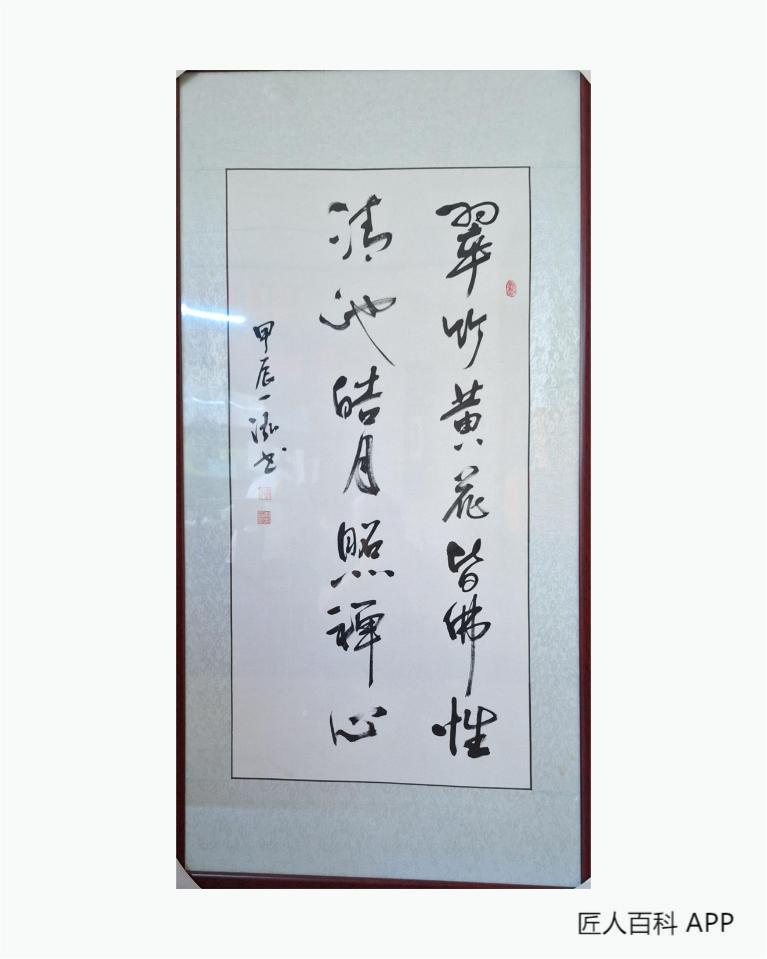 翠竹黄花皆佛性
清池皓月照禅心
甲辰一泓书
匠人百科 APP